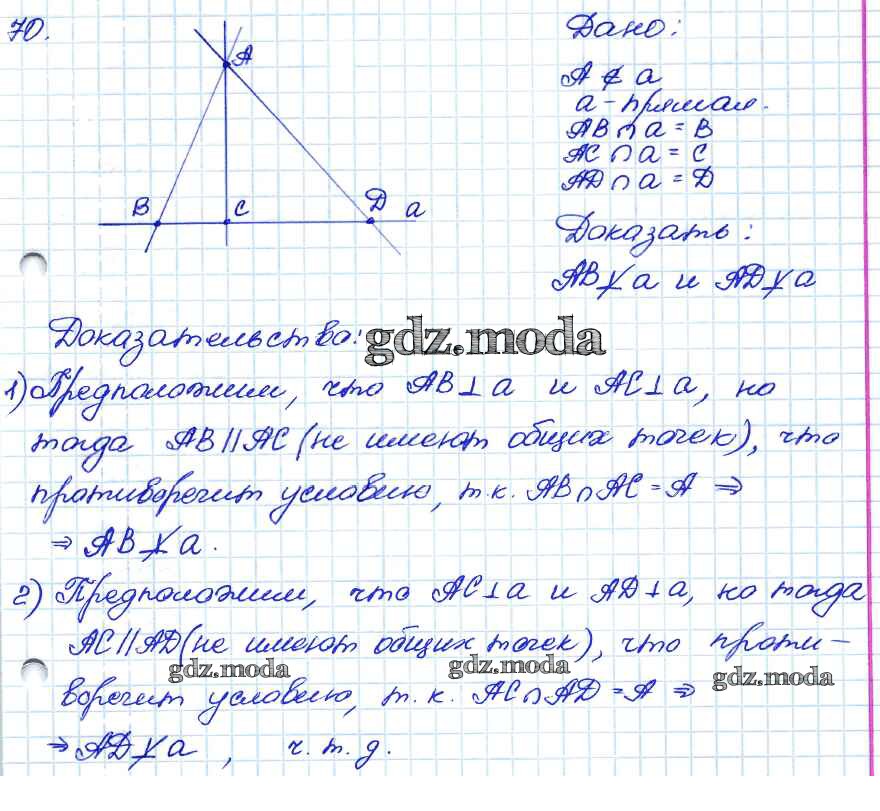 70.
A
B
C
D
a
Дано:
A ⊄ a
a - прямая.
AB ∩ a = B
AC ∩ a = C
AD ∩ a = D
Доказать:
AB ⊥̸ a и AD ⊥̸ a
Доказательство:
gdz.moda
1) Предположим, что AB ⊥ a и AC ⊥ a, но
тогда AB || AC (не имеют общих точек), что
противоречит условию, т.к. AB ∩ AC = A ⇒
⇒ AB ⊥̸ a.
2) Предположим, что AC ⊥ a и AD ⊥ a, но тогда
AC || AD (не имеют общих точек), что проти-
gdz.moda
gdz.moda
gdz.moda
воречит условию, т.к. AC ∩ AD = A ⇒
⇒ AD ⊥̸ a, ч.т.д.